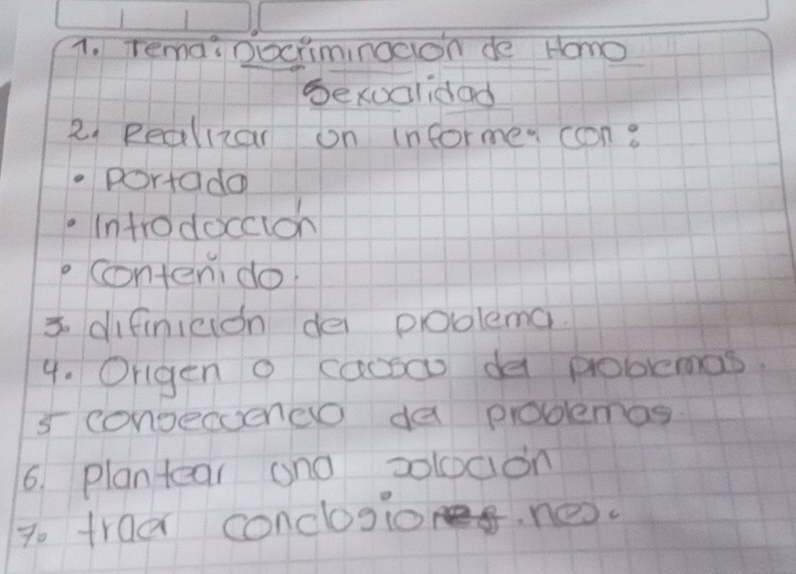 1. Tema: Discriminación de Homo
Sexualidad
2. Realizar un informe: con:
• Portada
• Introducción
• Contenido.
3. difinición del problema.
4. Origen o causas del problemas.
5 consecuencia del problemas.
6. Plantear una solución
7. traer conclusiones.